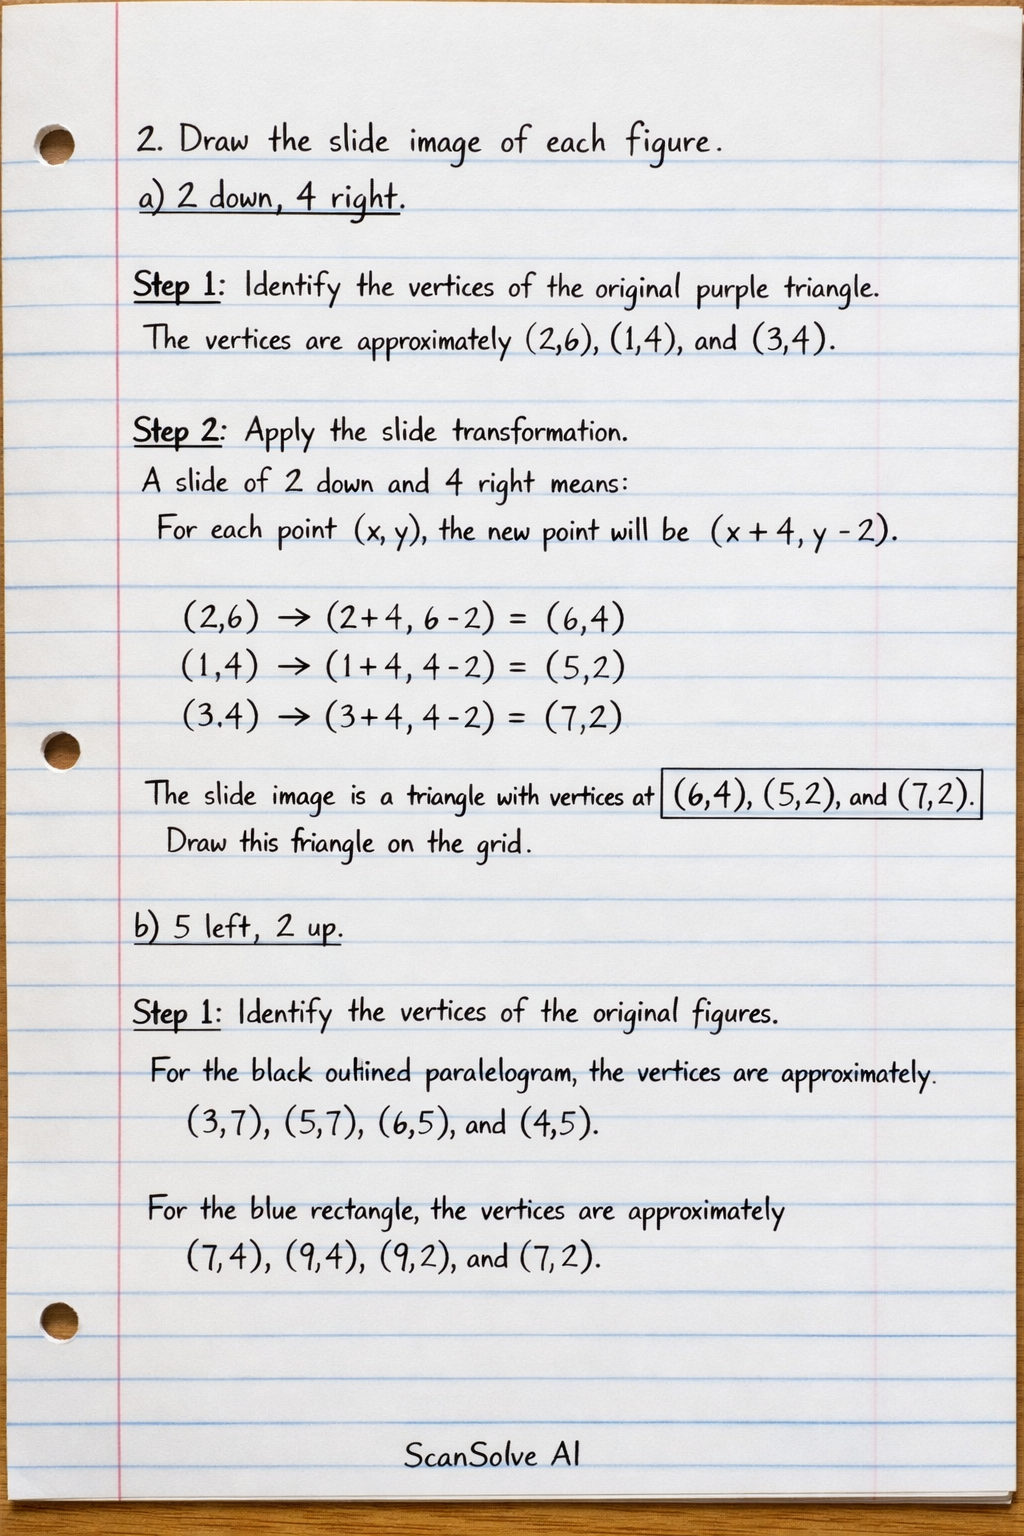 2. Draw the slide image of each figure.
a) 2 down, 4 right.
Step 1: Identify the vertices of the original purple triangle.
The vertices are approximately (2,6), (1,4), and (3,4).
Step 2: Apply the slide transformation.
A slide of 2 down and 4 right means:
For each point (x, y), the new point will be (x + 4, y - 2).
(2,6) → (2+4, 6-2) = (6,4)
(1,4) → (1+4, 4-2) = (5,2)
(3.4) → (3+4, 4-2) = (7,2)
The slide image is a triangle with vertices at (6,4), (5,2), and (7,2).
Draw this friangle on the grid.
b) 5 left, 2 up.
Step 1: Identify the vertices of the original figures.
For the black outlined paralelogram, the vertices are approximately.
(3,7), (5,7), (6,5), and (4,5).
For the blue rectangle, the vertices are approximately
(7,4), (9,4), (9,2), and (7,2).
ScanSolve AI